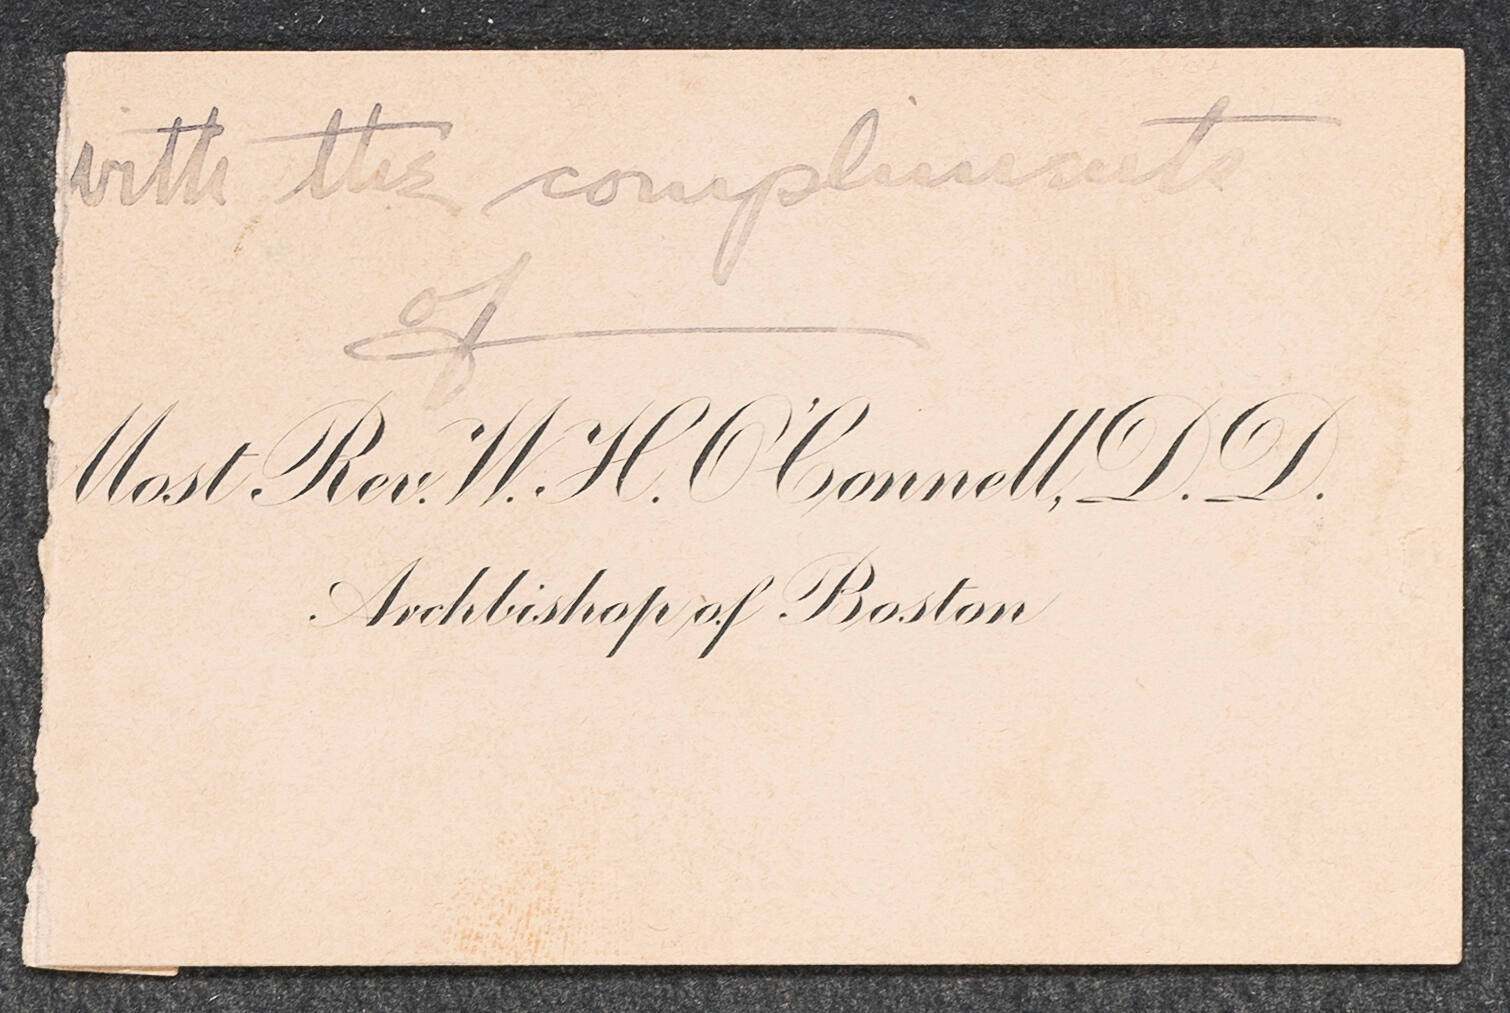 with the compliments
of
Most Rev. W. H. O'Connell, D. D.
Archbishop of Boston